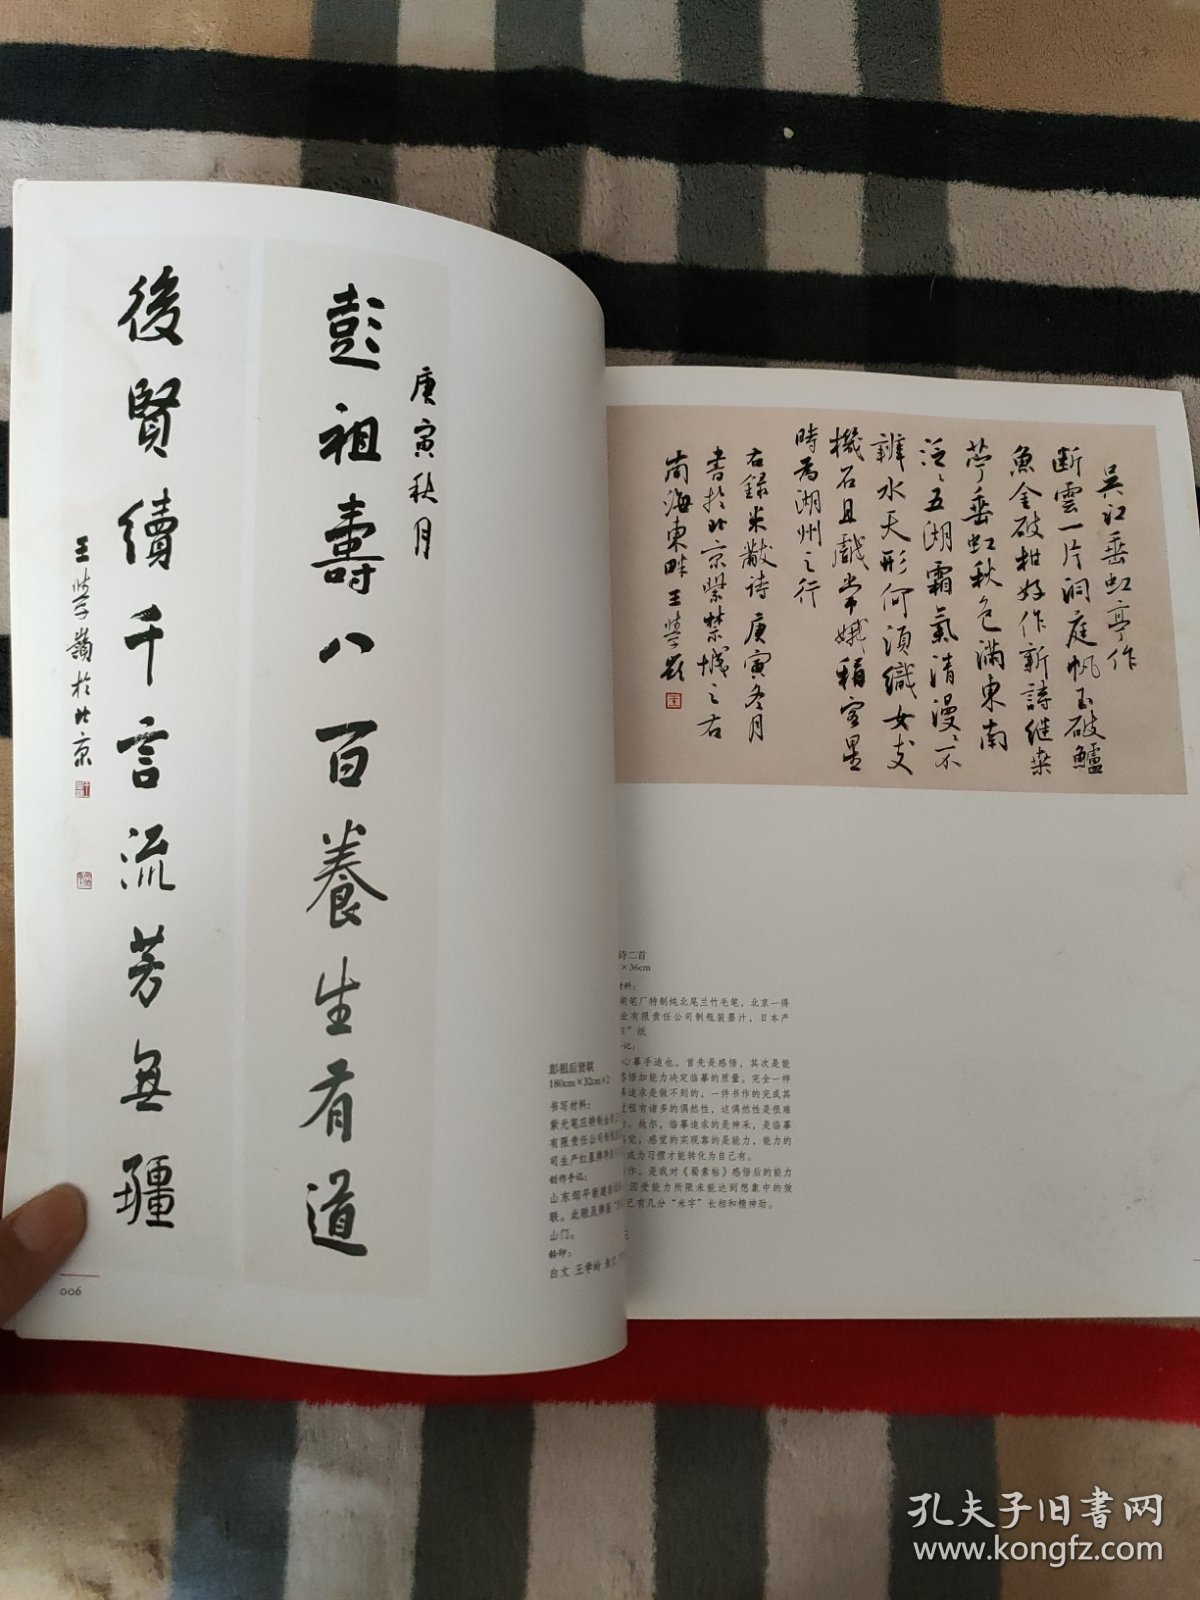 庚寅秋月
彭祖壽八百養生有道
後賢續千言流芳無疆
王學嶺於北京
彭祖后贤联
180cm×32cm×2
书写材料:
紫光笔庄特制
有限责任公司制
司生产红星牌
创作手记:
山东邹平新建
联。此联及牌
山门。
钤印:
白文 王学岭
006
吴江垂虹亭作
断雲一片洞庭帆玉破鱸
魚金破柑好作新詩继桑
苧垂虹秋色滿東南
泛泛五湖霜氣清漫漫不
辨水天形何須織女支
機石且戲常娥稱客星
時為湖州之行
右錄米黻诗庚寅冬月
書於北京紫禁城之右
南海東畔王學嶺
诗二首
×36cm
材料:
湖笔厂特制纯北尾兰竹毛笔,北京一得
业有限责任公司制瓶装墨汁,日本产
”纸
记:
心摹手追也。首先是感悟,其次是能
悟加能力决定临摹的质量。完全一样
追求是做不到的,一件书作的完成其
程有诸多的偶然性,这偶然性是很难
。故尔,临摹追求的是神采,是临摹
觉,感觉的实现靠的是能力,能力的
成为习惯才能转化为自己有。
作,是我对《蜀素帖》感悟后的能力
因受能力所限未能达到想象中的效
已有几分“米字”长相和精神劲。
孔夫子旧书网
www.kongfz.com